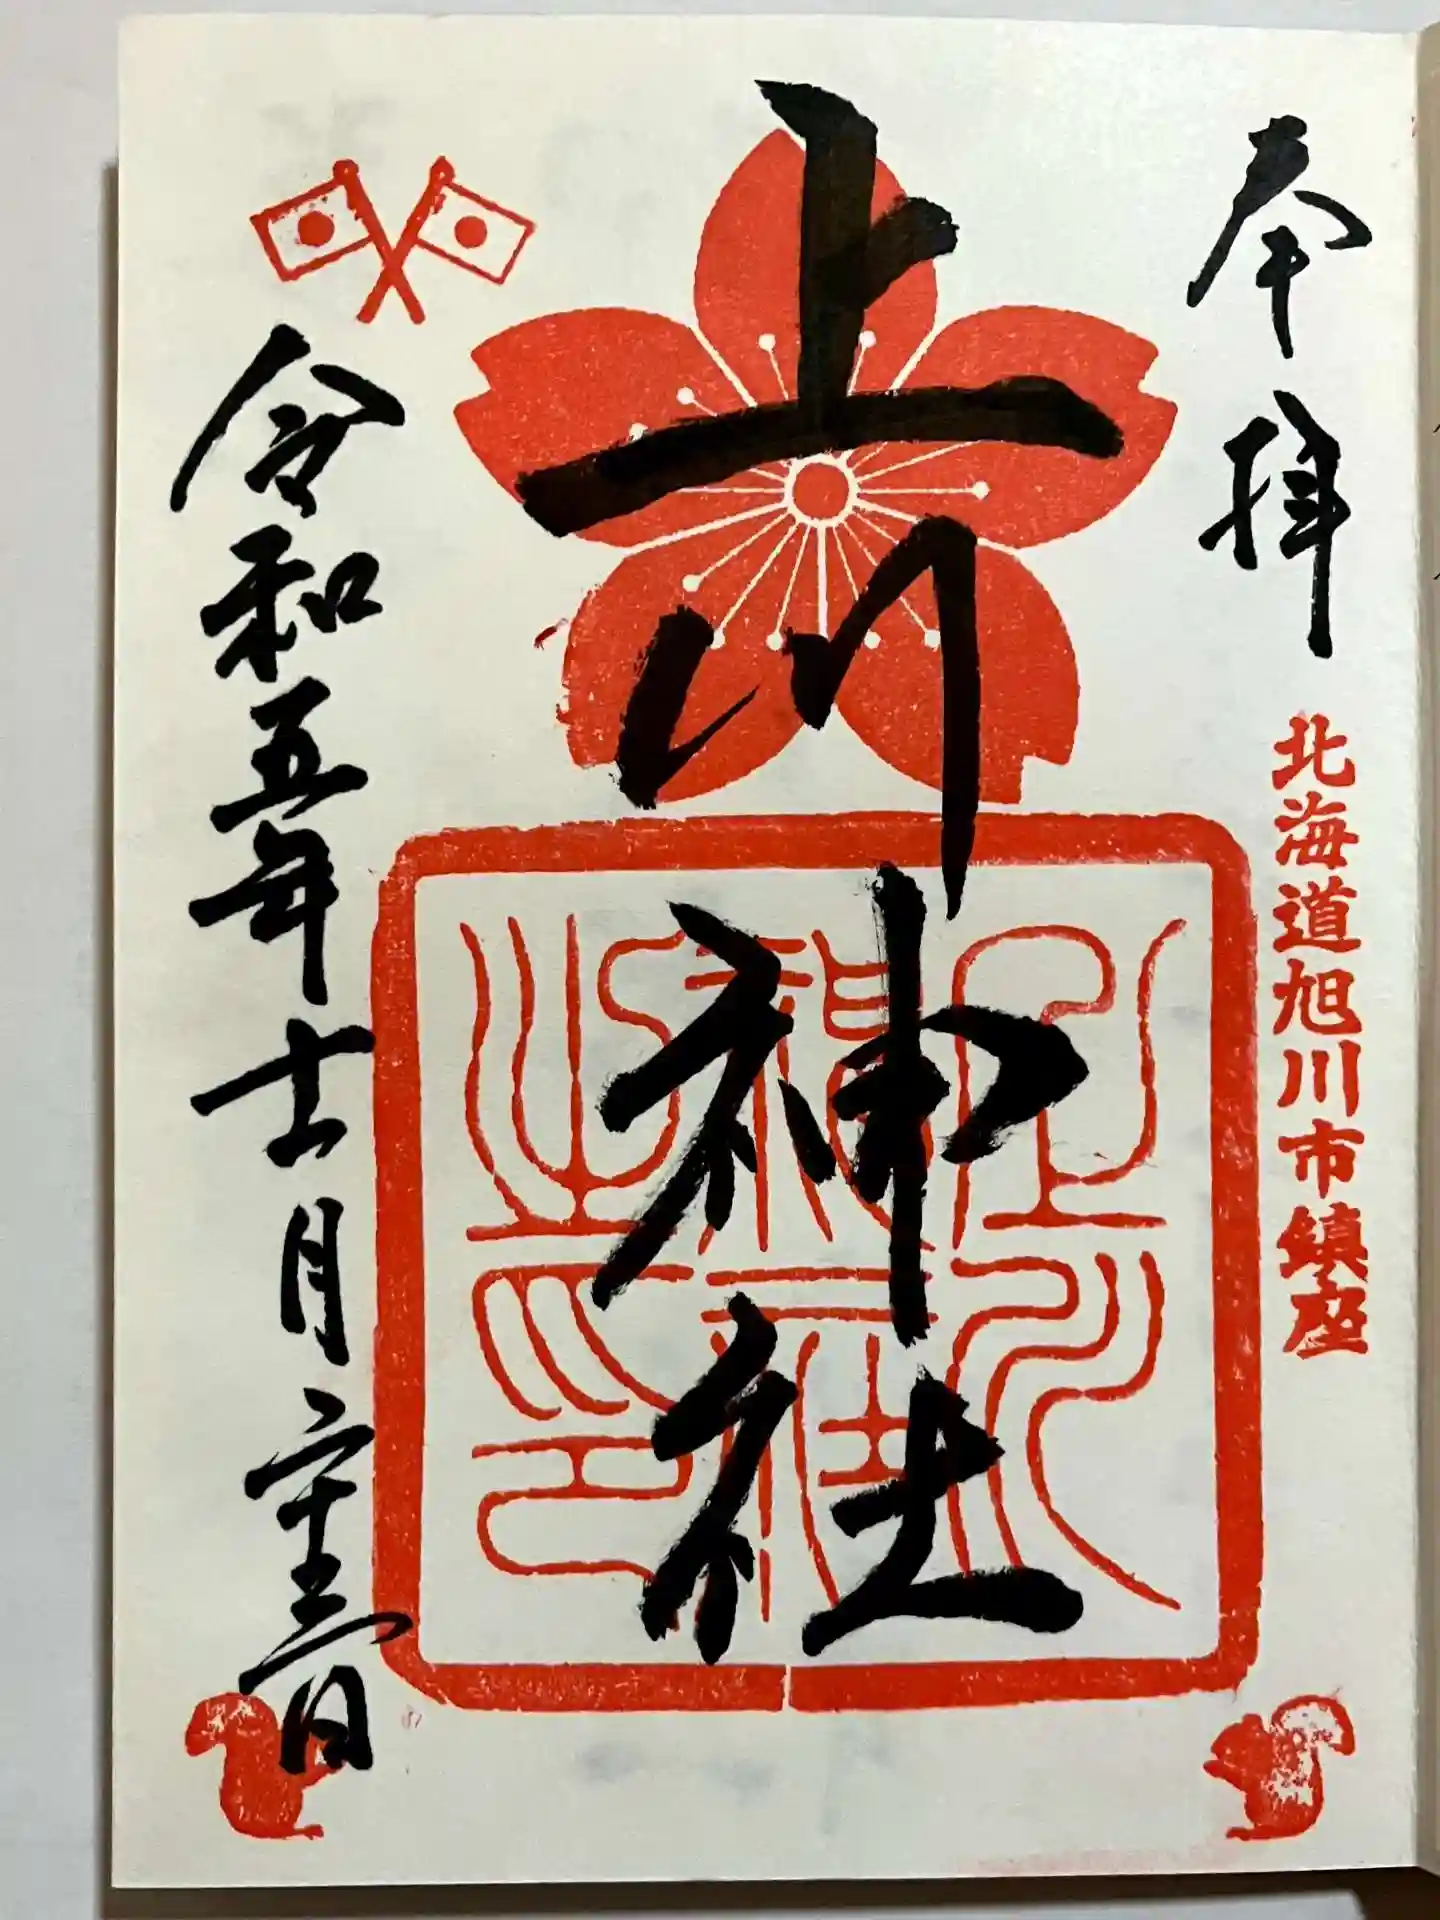 奉拝
北海道旭川市鎮座
上川神社
上川
神社
之印
令和五年十一月二十三日